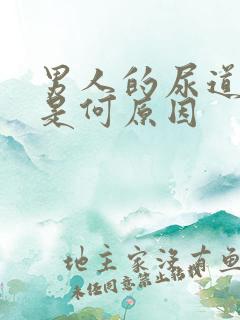 男人的尿道
是何原因
地主家没有鱼
未经同意禁止转载